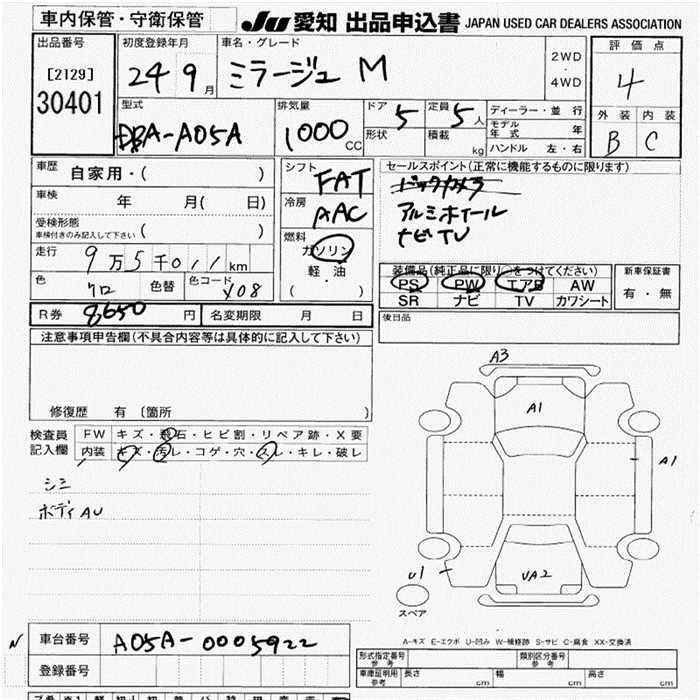 車内保管・守衛保管
JU 愛知 出品申込書 JAPAN USED CAR DEALERS ASSOCIATION
出品番号
[2129]
30401
初度登録年月
24 9月
車名・グレード
ミラージュ M
2WD
・
4WD
評価点
4
外装 内装
B C
型式
DBA-A05A
排気量
1000 CC
ドア 5
形状
定員 5人
積載 kg
ディーラー・並行
モデル年式 年
ハンドル 左・右
車歴 自家用・( )
車検 年 月( 日)
受検形態
車検付きのみ記入して下さい ( )
走行 9万5千011km
色 クロ 色替 色コード X08
シフト FAT
冷房 AAC
燃料
ガソリン
軽・油
( ・ )
セールスポイント(正常に機能するものに限ります)
バックカメラ
アルミホイール
ナビTV
装備品(純正品に限り○をつけてください)
PS PW エアB AW
SR ナビ TV カワシート
新車保証書
有・無
R券 8650円 名変期限 月 日
後日品
注意事項申告欄(不具合内容等は具体的に記入して下さい)
修復歴 有 〔箇所 〕
検査員記入欄
FW キズ・飛石・ヒビ割・リペア跡・X要
内装 キズ・汚レ・コゲ・穴・スレ・キレ・破レ
シミ
ボディAU
A3
A1
A1
U1
UA2
スペア
A-キズ E-エクボ U-凹み W-補修跡 S-サビ C-腐食 XX-交換済
N
車台番号 A05A-0005922
登録番号
形式指定番号 参考
類別区分番号 参考
車庫証明用 参考 長さ cm 幅 cm 高さ cm